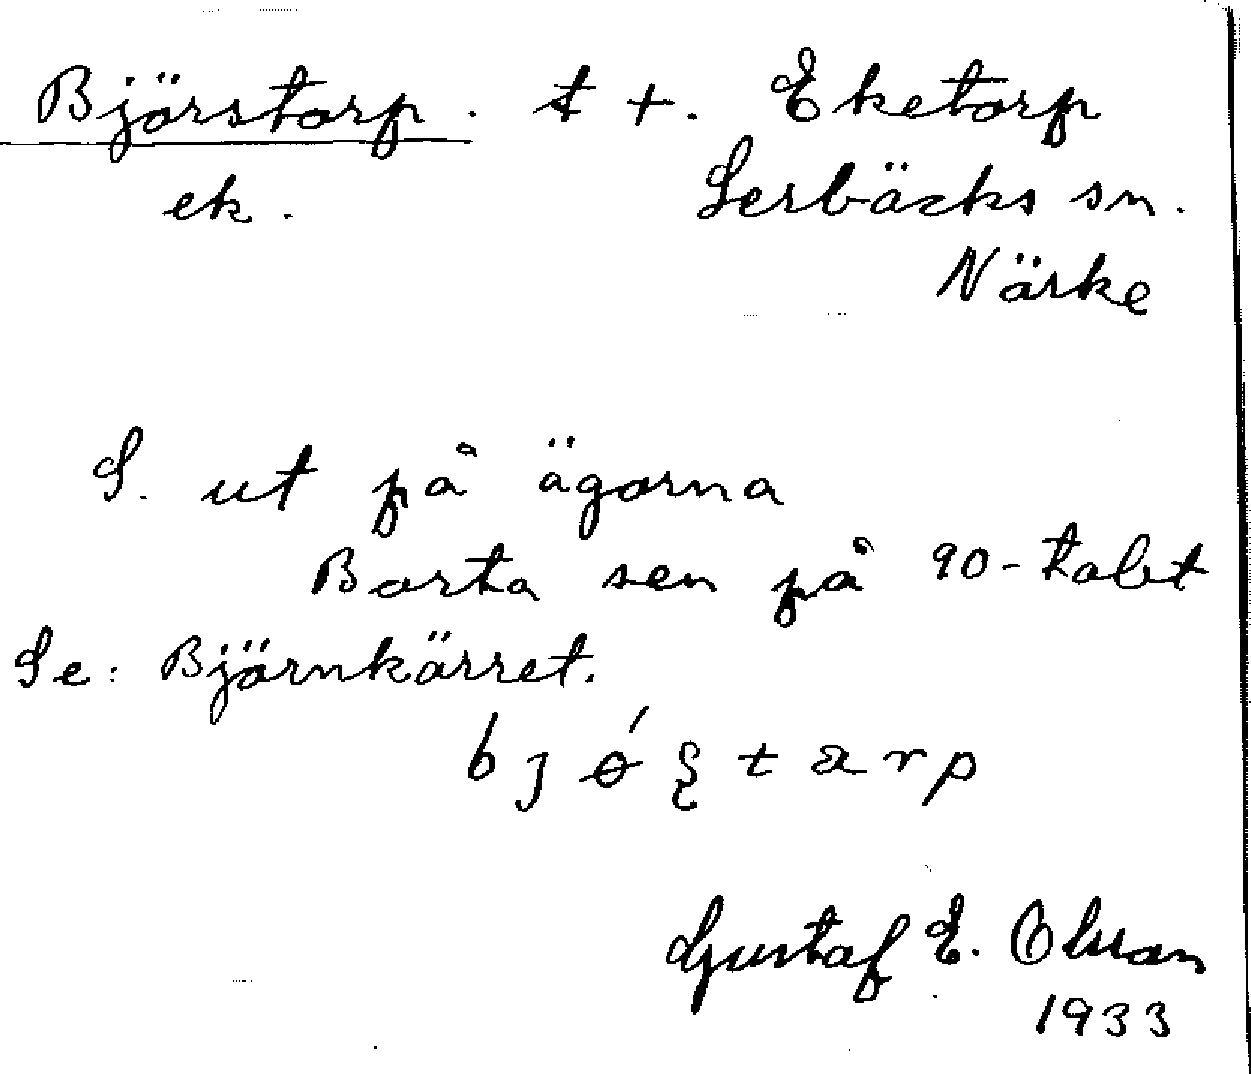 Björstorp. t +. Eketorp
ek. Lerbäcks sn.
Närke
S. ut på ägorna
Borta sen på 90-talet
Se: Björnkärret.
Gustaf E. Olsson
1933